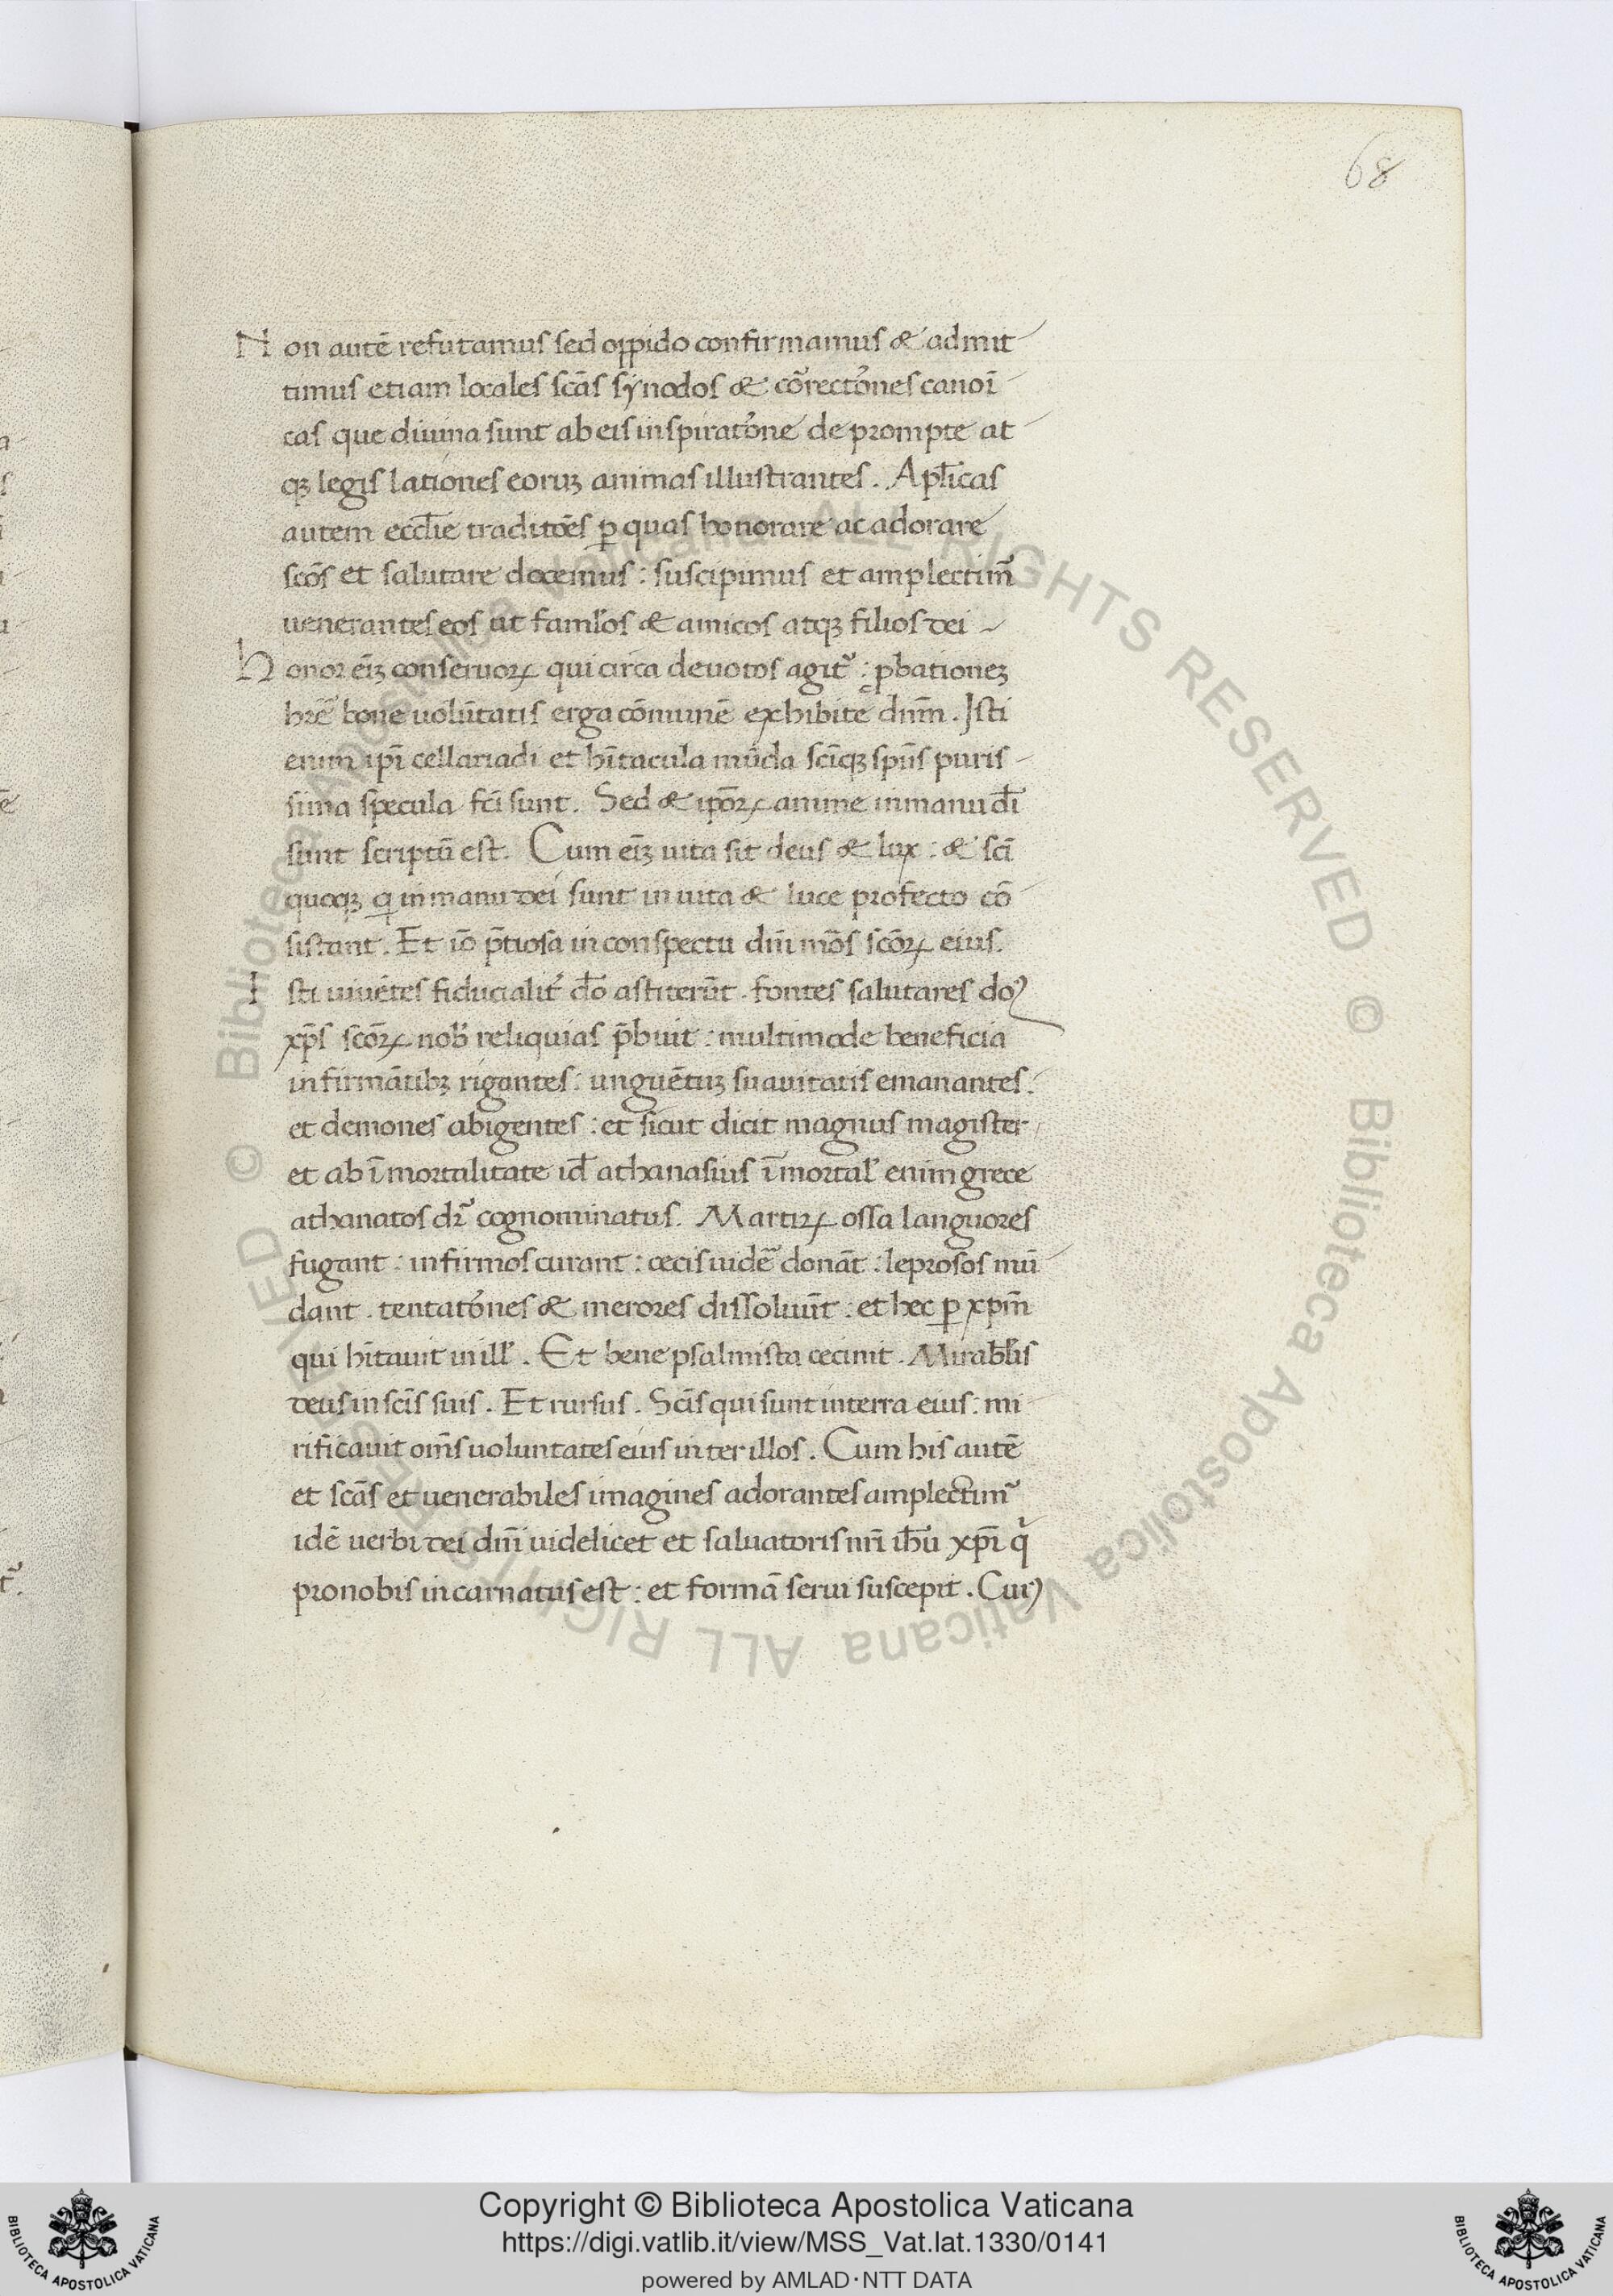 68
Non autē refutamus sed oppido confirmamus & admit
timus etiam locales scās synodos & cōrectōnes canoī
cas que diuina sunt ab eis inspiratōne de prompte at
qꝫ legis lationes eoruꝫ animas illustrantes. Aplicas
autem eccl̄ie traditōēs ꝑ quas honorare ac adorare
scōs et salutare docemus: suscipimus et amplectim᷑
uenerantes eos ut famlos & amicos atqꝫ filios dei
Honor eīꝫ conseruoꝝ qui circa deuotos agit᷑: ꝓbationeꝫ
hrē bone uolūtatis erga cōmunē exhibite dnm̄. Isti
enim ipī cellariadi et hītacula mūda scīqꝫ spūs puris
sima specula fcī sunt. Sed & ipōꝝ anime in manu dī
sunt scriptū est. Cum eīꝫ uita sit deus & lux: & scī
quoqꝫ q̄ in manu dei sunt in uita & luce profecto cō
sistunt. Et iō p̄tiosa in conspectu dnī mōs scōꝝ eius.
Isti uiuētes fiducialit᷑ dō astiterūt. fontes salutares do᷑
xp̄s scōꝝ nob̄ reliquias p̄buit: multimode beneficia
infirmātibꝫ rigantes: unguētuꝫ suauitatis emanantes:
et demones abigentes: et sicut dicit magnus magister
et ab īmortalitate id̄ athanasius īmortal᷑ enim grece
athanatos dr᷑ cognominatus. Martiꝝ ossa languores
fugant: infirmos curant: cecis uidē donāt: leprosos mū
dant. tentatōnes & merores dissoluūt: et hec ꝑ xpm̄
qui hītauit in ill᷑. Et bene psalmista cecinit. Mirabl̄is
deus in scīs suis. Et rursus. Scīs qui sunt in terra eius: mi
rificauit om̄s uoluntates eius inter illos. Cum his autē
et scās et uenerabiles imagines adorantes amplectim᷑
idē uerbi dei dnī uidelicet et saluatoris nrī ihū xpī q̄
pro nobis incarnatus est: et formā serui suscepit. Cur᷑
© Biblioteca Apostolica Vaticana ALL RIGHTS RESERVED © Biblioteca Apostolica Vaticana ALL RIGHTS RESERVED
Copyright © Biblioteca Apostolica Vaticana
https://digi.vatlib.it/view/MSS_Vat.lat.1330/0141
powered by AMLAD・NTT DATA
BIBLIOTECA APOSTOLICA VATICANA
BIBLIOTECA APOSTOLICA VATICANA